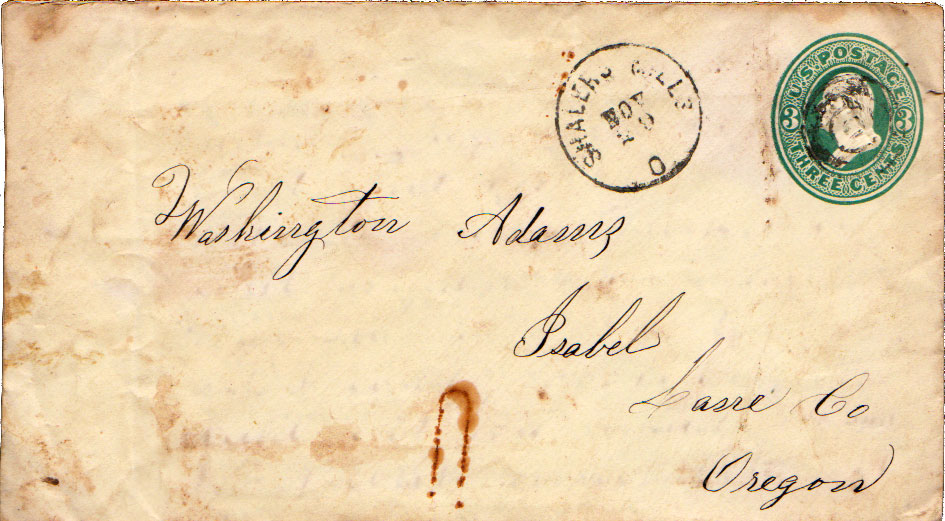 U.S. POSTAGE
3 3
THREE CENTS
SHALERS MILLS
NOV
O
Washington Adams
Isabel
Lane Co
Oregon